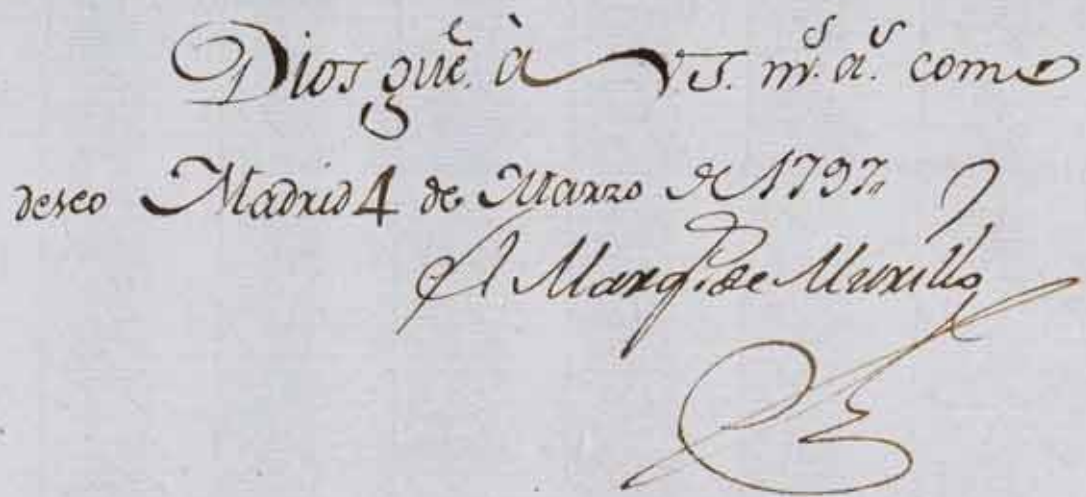 Dios gũe. à V.S. mˢ. aˢ. como
deseo Madrid 4 de Marzo de 1797.
El Marqˢ. de Murillo